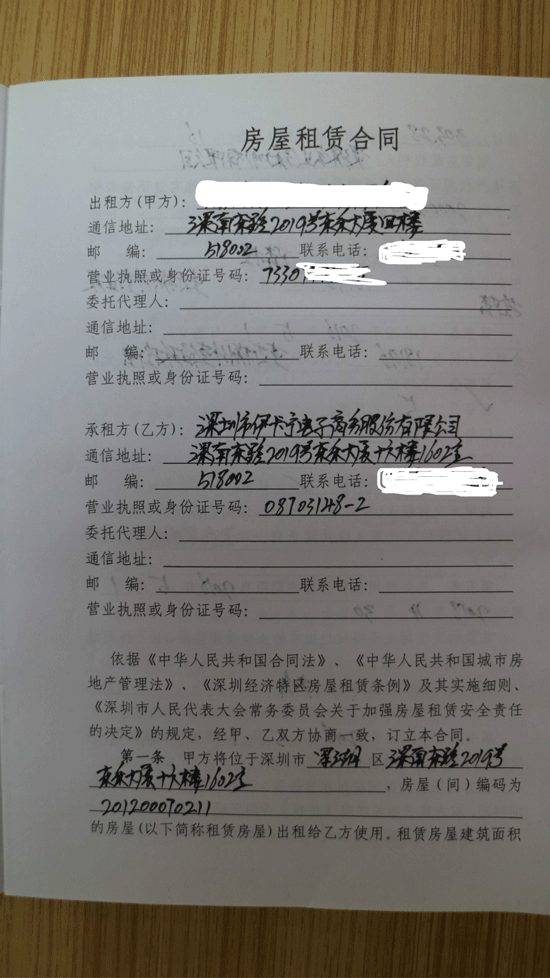 房屋租赁合同
出租方(甲方):
通信地址: 深南东路2019号东乐大厦四楼
邮 编: 518002 联系电话:
营业执照或身份证号码: 7330
委托代理人:
通信地址:
邮 编: 联系电话:
营业执照或身份证号码:
承租方(乙方): 深圳市伊卡宁电子商务股份有限公司
通信地址: 深南东路2019号东乐大厦十六楼1602室
邮 编: 518002 联系电话:
营业执照或身份证号码: 08703148-2
委托代理人:
通信地址:
邮 编: 联系电话:
营业执照或身份证号码:
依据《中华人民共和国合同法》、《中华人民共和国城市房
地产管理法》、《深圳经济特区房屋租赁条例》及其实施细则、
《深圳市人民代表大会常务委员会关于加强房屋租赁安全责任
的决定》的规定,经甲、乙双方协商一致,订立本合同。
第一条 甲方将位于深圳市 区 深南东路2019号
东乐大厦十六楼1602室 ,房屋(间)编码为
201200070211
的房屋(以下简称租赁房屋)出租给乙方使用。租赁房屋建筑面积